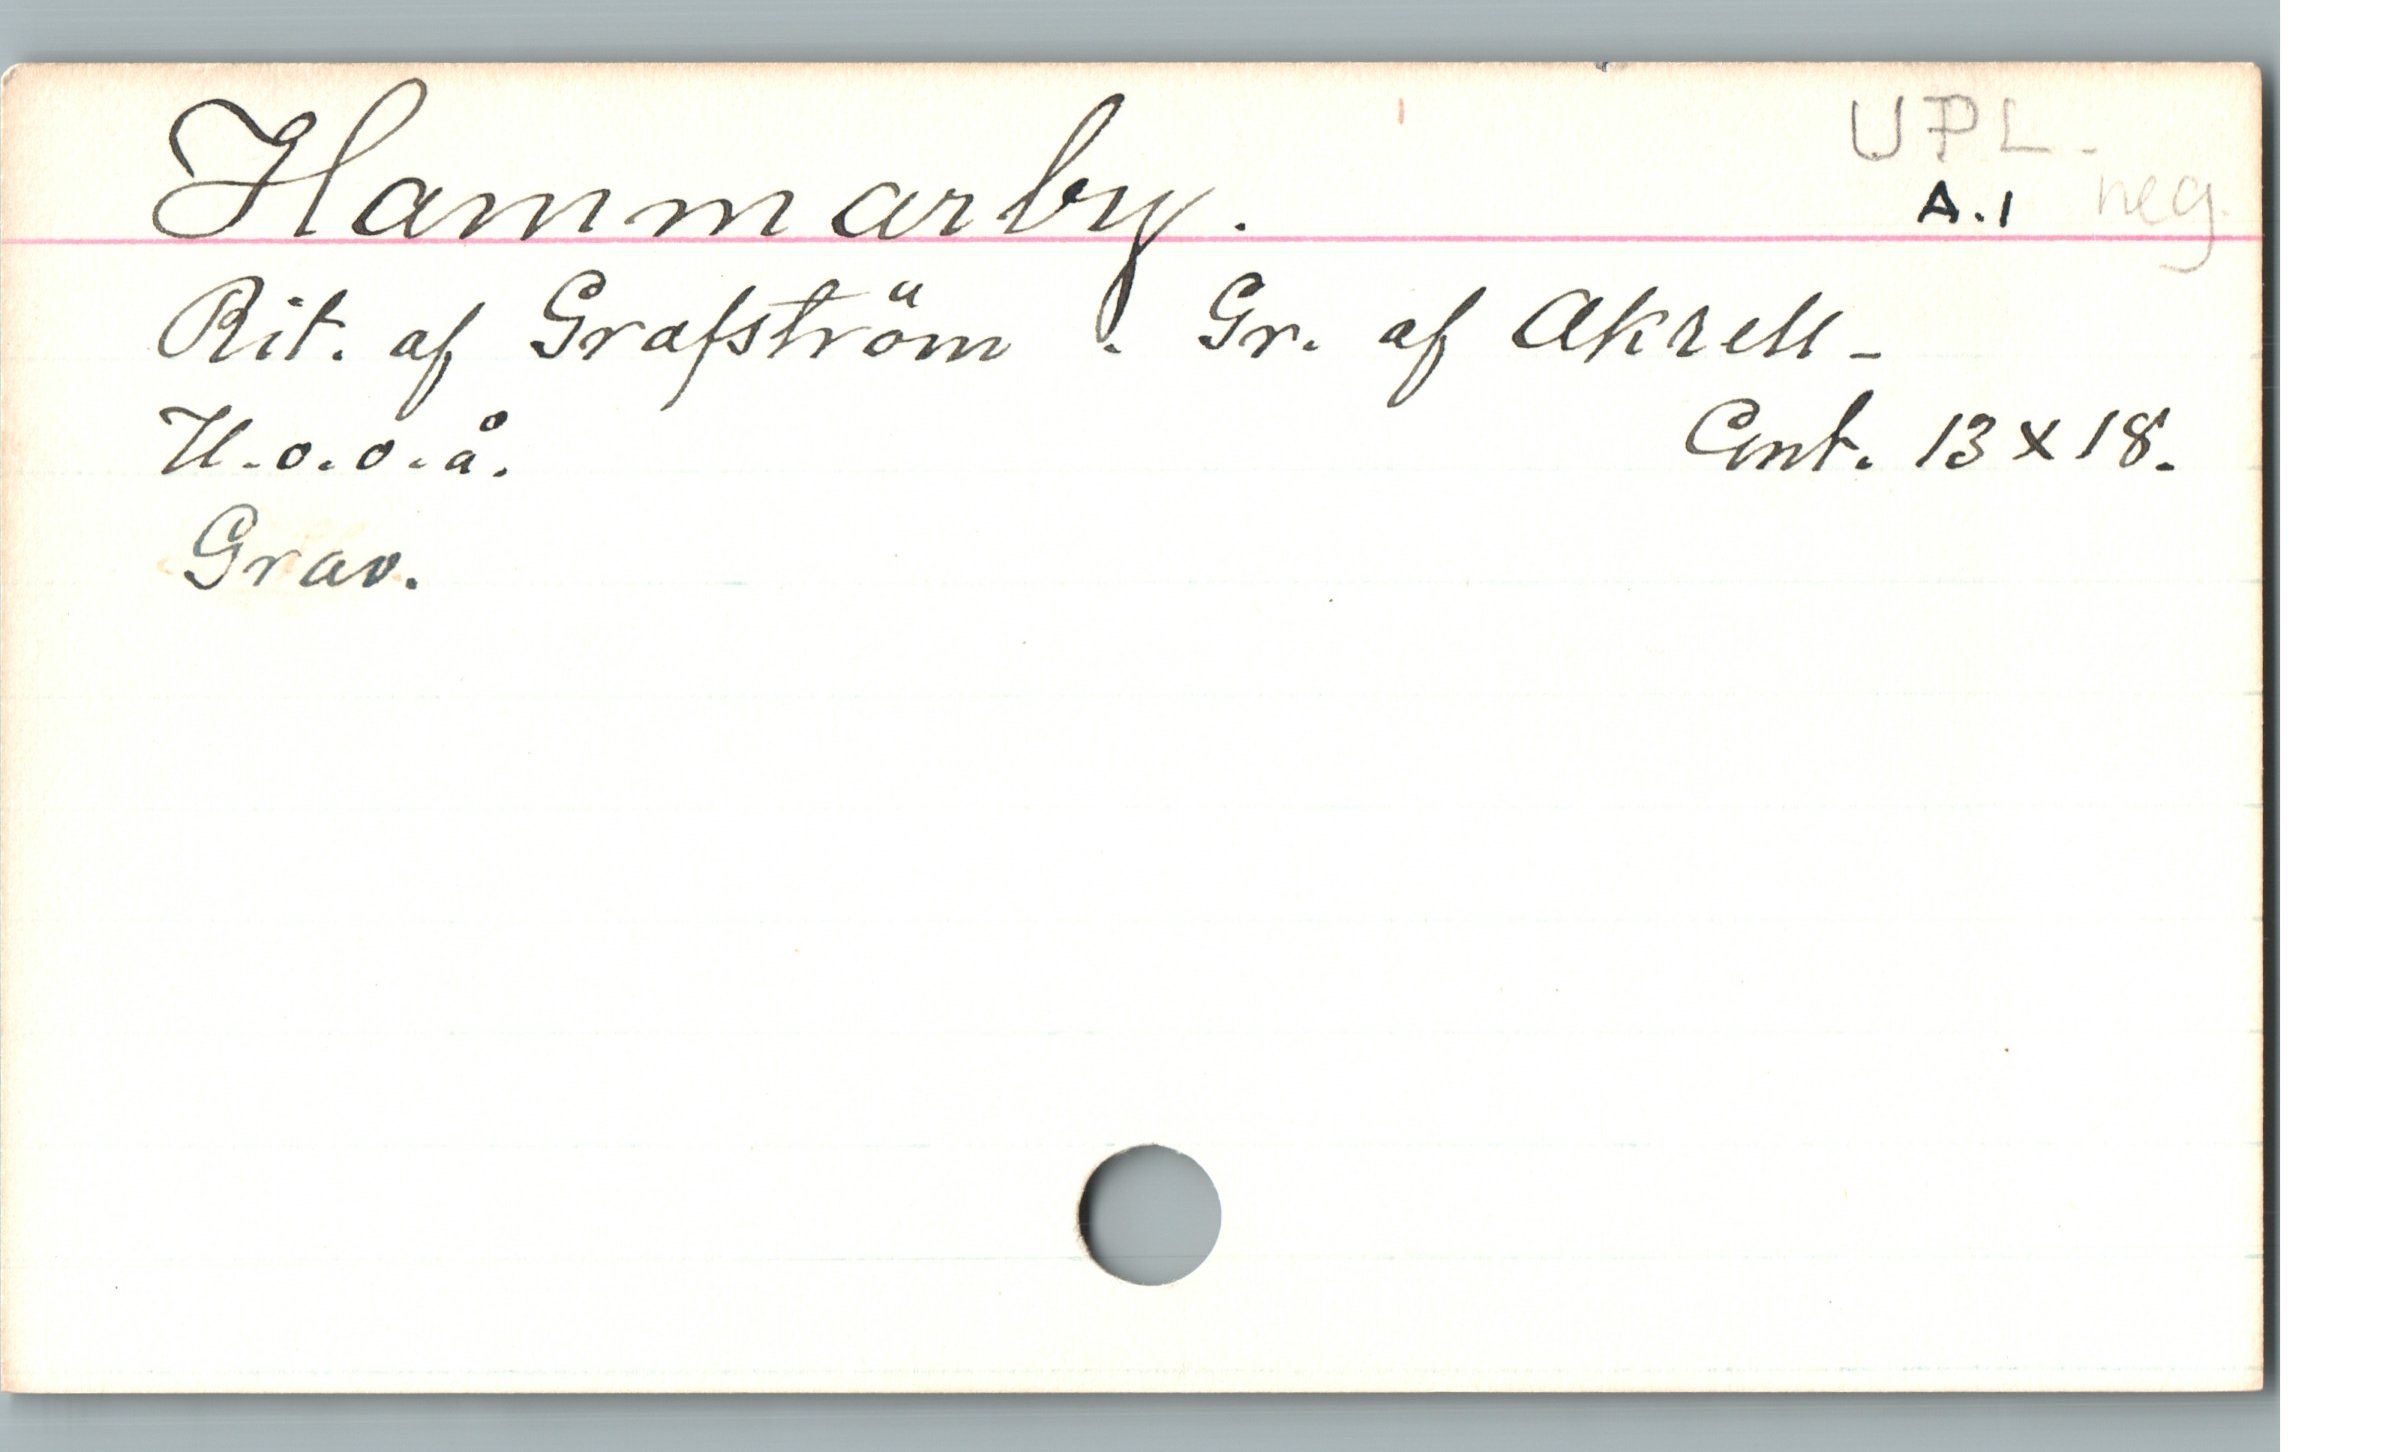 Hammarby.
UPL.
A.1 neg.
Rit. af Grafström. Gr. af Akrell -
U.o.o.å. Cent. 13 x 18.
Grav.